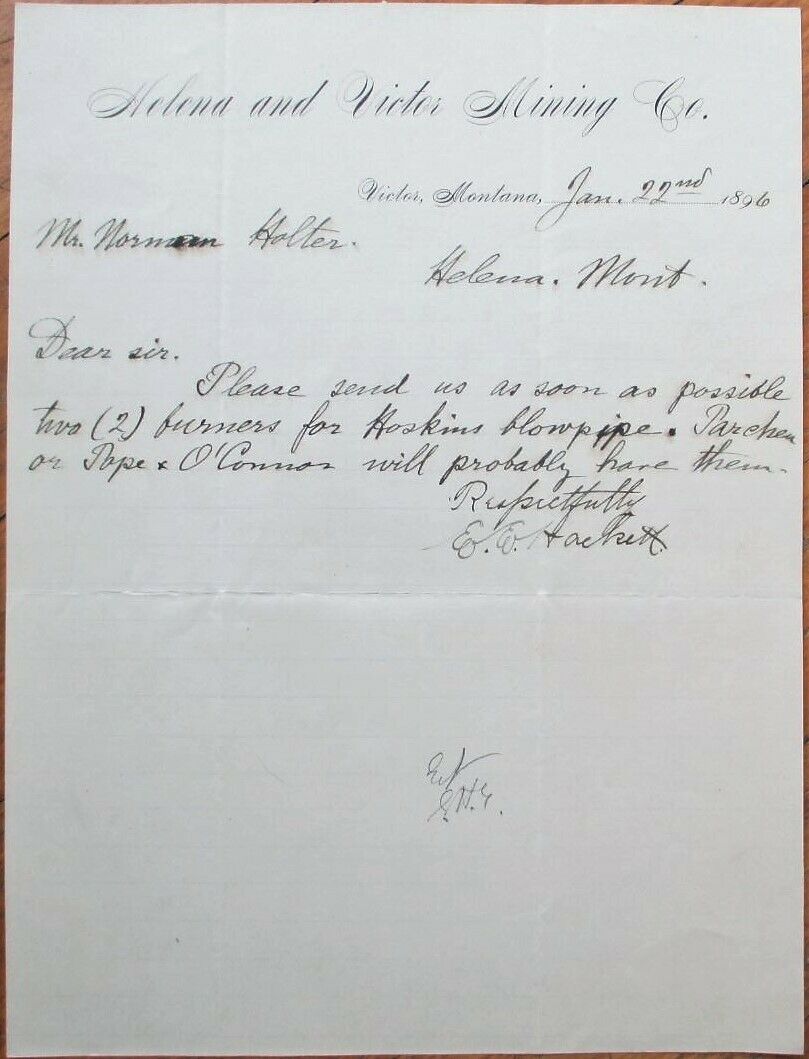 Helena and Victor Mining Co.
Victor, Montana, Jan. 22nd 1896
Mr. Norman Holter.
Helena. Mont.
Dear sir.
Please send us as soon as possible
two (2) burners for Hoskins blowpipe. Parchen
or Pope & O'Connor will probably have them.
Respectfully
E. E. Hackett.